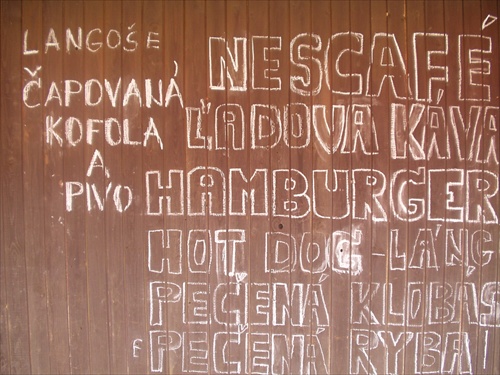 LANGOŠE,
ČAPOVANÁ
KOFOLA
A
PIVO
NESCAFÉ
ĽADOVA KÁVA
HAMBURGER
HOT DOG - LANG
PEČENÁ KLOBAS
PEČENÁ RYBA